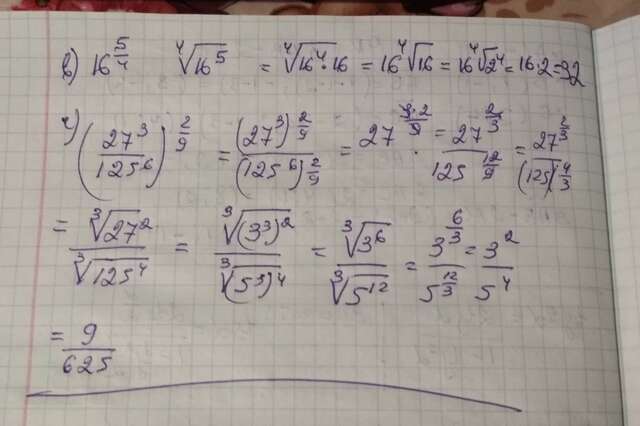 в) 16^(5/4) ⁴√16⁵ = ⁴√(16⁴·16) = 16 ⁴√16 = 16 ⁴√2⁴ = 16·2 = 32
г) (27³/125⁶)^(2/9) = (27³)^(2/9)/(125⁶)^(2/9) = 27^(3·2/9) · = 27^(2/3)/125^(12/9) = 27^(2/3)/(125)^(4/3)
= ³√27²/³√125⁴ = ³√(3³)²/³√(5³)⁴ = ³√3⁶/³√5¹² = 3^(6/3)/5^(12/3) = 3²/5⁴
= 9/625